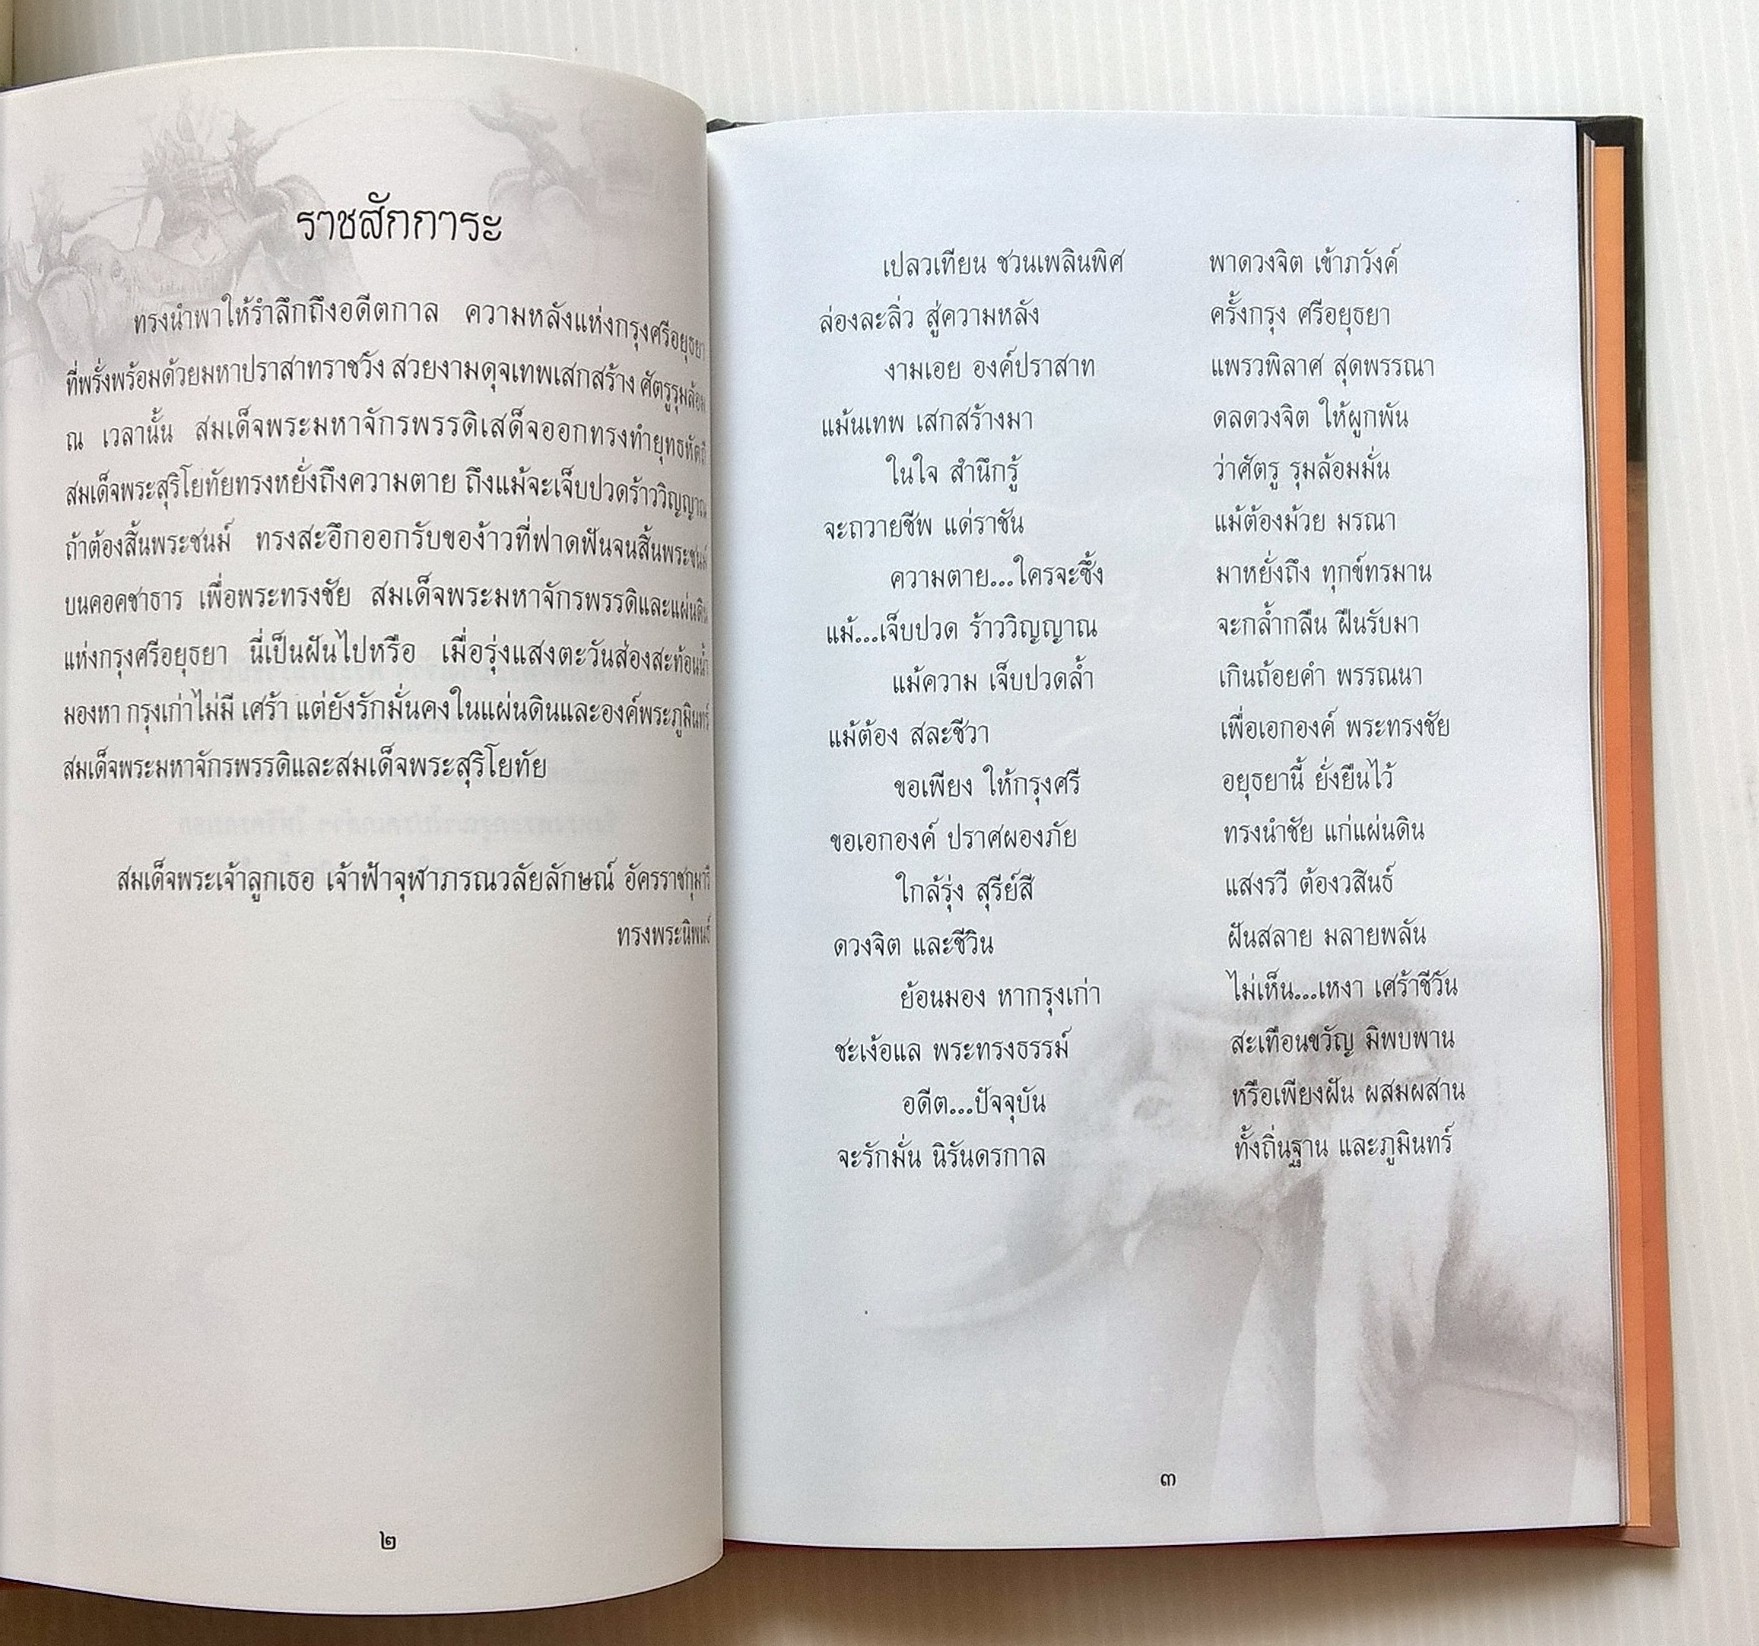 ราชสักการะ
ทรงนำพาให้รำลึกถึงอดีตกาล ความหลังแห่งกรุงศรีอยุธยา
ที่พรั่งพร้อมด้วยมหาปราสาทราชวัง สวยงามดุจเทพเสกสร้าง ศัตรูรุมล้อม
ณ เวลานั้น สมเด็จพระมหาจักรพรรดิเสด็จออกทรงทำยุทธหัตถี
สมเด็จพระสุริโยทัยทรงหยั่งถึงความตาย ถึงแม้จะเจ็บปวดร้าววิญญาณ
ถ้าต้องสิ้นพระชนม์ ทรงสะอึกออกรับของ้าวที่ฟาดฟันจนสิ้นพระชนม์
บนคอคชาธาร เพื่อพระทรงชัย สมเด็จพระมหาจักรพรรดิและแผ่นดิน
แห่งกรุงศรีอยุธยา นี่เป็นฝันไปหรือ เมื่อรุ่งแสงตะวันส่องสะท้อนน้ำ
มองหา กรุงเก่าไม่มี เศร้า แต่ยังรักมั่นคงในแผ่นดินและองค์พระภูมินทร์
สมเด็จพระมหาจักรพรรดิและสมเด็จพระสุริโยทัย
สมเด็จพระเจ้าลูกเธอ เจ้าฟ้าจุฬาภรณวลัยลักษณ์ อัครราชกุมารี
ทรงพระนิพนธ์
๒
เปลวเทียน ชวนเพลินพิศ พาดวงจิต เข้าภวังค์
ล่องละลิ่ว สู่ความหลัง ครั้งกรุง ศรีอยุธยา
งามเอย องค์ปราสาท แพรวพิลาศ สุดพรรณา
แม้นเทพ เสกสร้างมา ดลดวงจิต ให้ผูกพัน
ในใจ สำนึกรู้ ว่าศัตรู รุมล้อมมั่น
จะถวายชีพ แด่ราชัน แม้ต้องม้วย มรณา
ความตาย...ใครจะซึ้ง มาหยั่งถึง ทุกข์ทรมาน
แม้...เจ็บปวด ร้าววิญญาณ จะกล้ำกลืน ฝืนรับมา
แม้ความ เจ็บปวดล้ำ เกินถ้อยคำ พรรณนา
แม้ต้อง สละชีวา เพื่อเอกองค์ พระทรงชัย
ขอเพียง ให้กรุงศรี อยุธยานี้ ยั่งยืนไว้
ขอเอกองค์ ปราศผองภัย ทรงนำชัย แก่แผ่นดิน
ใกล้รุ่ง สุรีย์สี แสงรวี ต้องวสินธ์
ดวงจิต และชีวิน ฝันสลาย มลายพลัน
ย้อนมอง หากรุงเก่า ไม่เห็น...เหงา เศร้าชีวัน
ชะเง้อแล พระทรงธรรม์ สะเทือนขวัญ มิพบพาน
อดีต...ปัจจุบัน หรือเพียงฝัน ผสมผสาน
จะรักมั่น นิรันดรกาล ทั้งถิ่นฐาน และภูมินทร์
๓